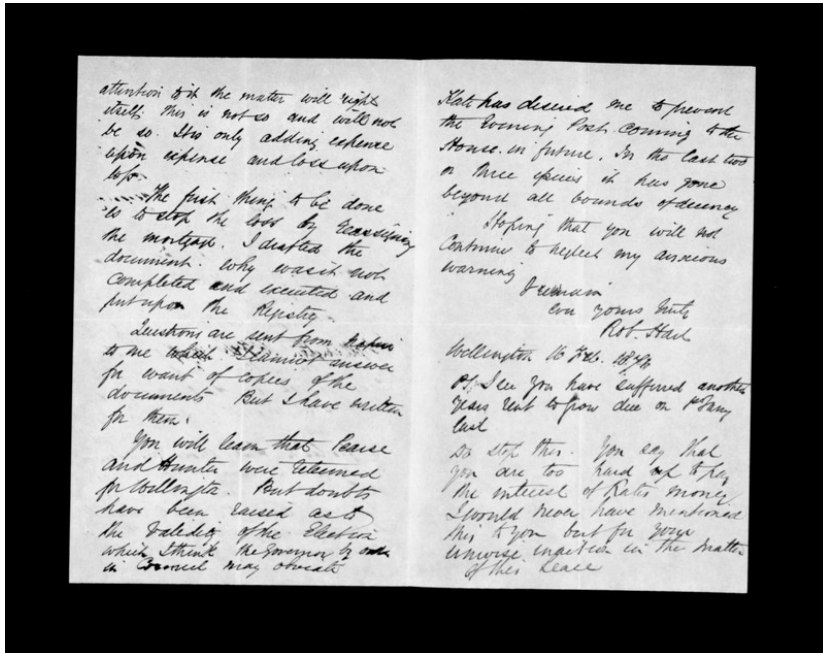 attention to it the matter will right
itself. This is not so and will not
be so. It is only adding expense
upon expense and loss upon
loss.
The first thing to be done
is to stop the loss by reassigning
the mortgage. I drafted the
document. Why was it not
completed and executed and
put upon the Registry
Questions are sent from Napier
to me which I cannot answer
for want of copies of the
documents But I have written
for them.
You will learn that Pearce
and Hunter were returned
for Wellington. But doubts
have been raised as to
the validity of the Election
which I think the Governor by order
in Council may obviate
Kate has desired me to prevent
the Evening Post coming to the
House in future. In the last two
or three it has gone
beyond all bounds of decency
Hoping that you will not
continue to neglect my anxious
warning
I remain
ever yours truly
Rob. Hart
Wellington 16 Feb.
PS. I see you have suffered another
years rent to grow due on 1st Jany
last
Do stop this. You say that
you are too hard up to pay
the interest of Kates money
I would never have mentioned
this to you but for your
unwise inaction in the matter
of this Lease